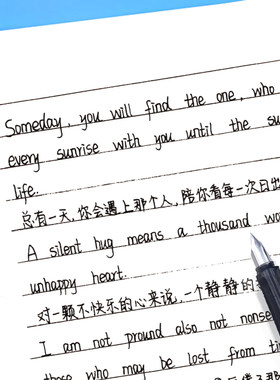 Someday, you will find the one, who
every sunrise with you until the su
life.
总有一天,你会遇上那个人,陪你看每一次日
A silent hug means a thousand wo
unhappy heart.
对一颗不快乐的心来说,一个静静的
I am not pround also not nonse
those who may be lost from ti